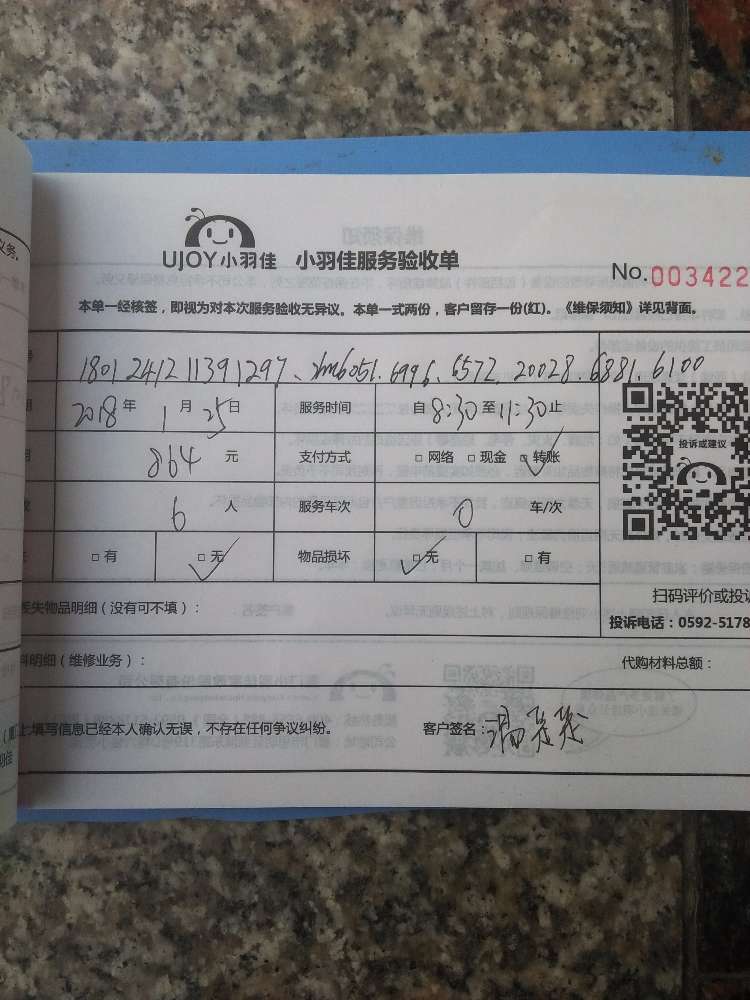 UJOY小羽佳 小羽佳服务验收单
No.003422
本单一经核签，即视为对本次服务验收无异议。本单一式两份，客户留存一份(红)。《维保须知》详见背面。
号 1801241211391297、xm6051.6996.6572.20028.6881.6100
2018年1月25日 服务时间 自8:30至11:30止
864元 支付方式 □网络 □现金 □转账
投诉或建议
6人 服务车次 0车/次
□有 □无 物品损坏 □无 □有
扫码评价或投诉
丢失物品明细（没有可不填）：
投诉电话：0592-5178
料明细（维修业务）： 代购材料总额：
上填写信息已经本人确认无误，不存在任何争议纠纷。 客户签名：